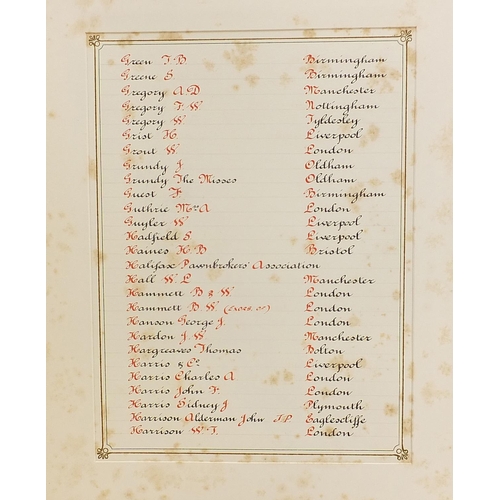 Green T. B Birmingham
Greene S Birmingham
Gregory A D Manchester
Gregory T. W Nottingham
Gregory W Tyldesley
Grist H. Liverpool
Grout W. London
Grundy J. Oldham
Grundy The Misses Oldham
Guest F Birmingham
Guthrie Mrs A London
Guyler W. Liverpool
Hadfield S Liverpool
Haines H. B Bristol
Halifax Pawnbrokers' Association
Hall W. L Manchester
Hammett B & W. London
Hammett B. W. London
Hanson George J. London
Hardon J. W Manchester
Hargreaves Thomas Bolton
Harris & Co. Liverpool
Harris Charles A London
Harris John F. London
Harris Sidney J Plymouth
Harrison Alderman John JP Eaglescliffe
Harrison W. T. London